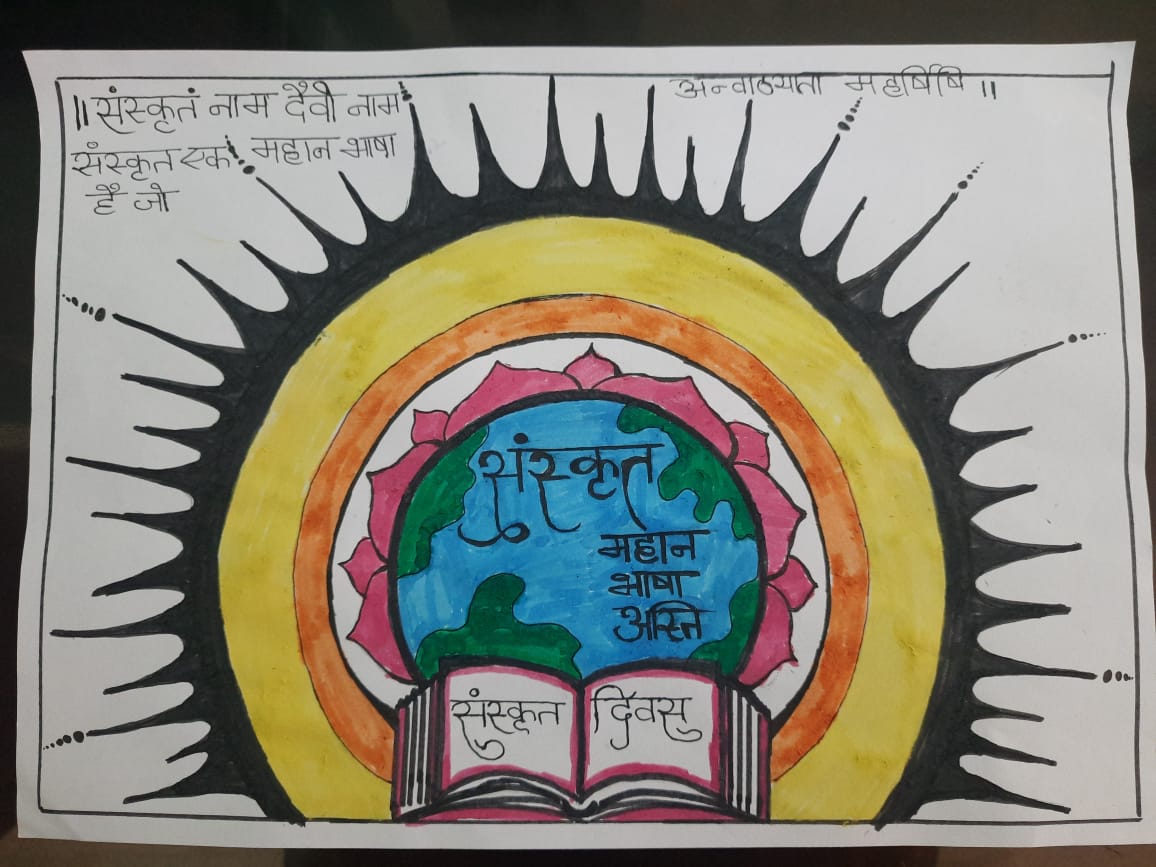 ॥ संस्कृतं नाम दैवी नाम
संस्कृत एक महान भाषा
है जो
अन्वाख्यता महर्षिषि ॥
संस्कृत
महान
भाषा
अस्ति
संस्कृत दिवस